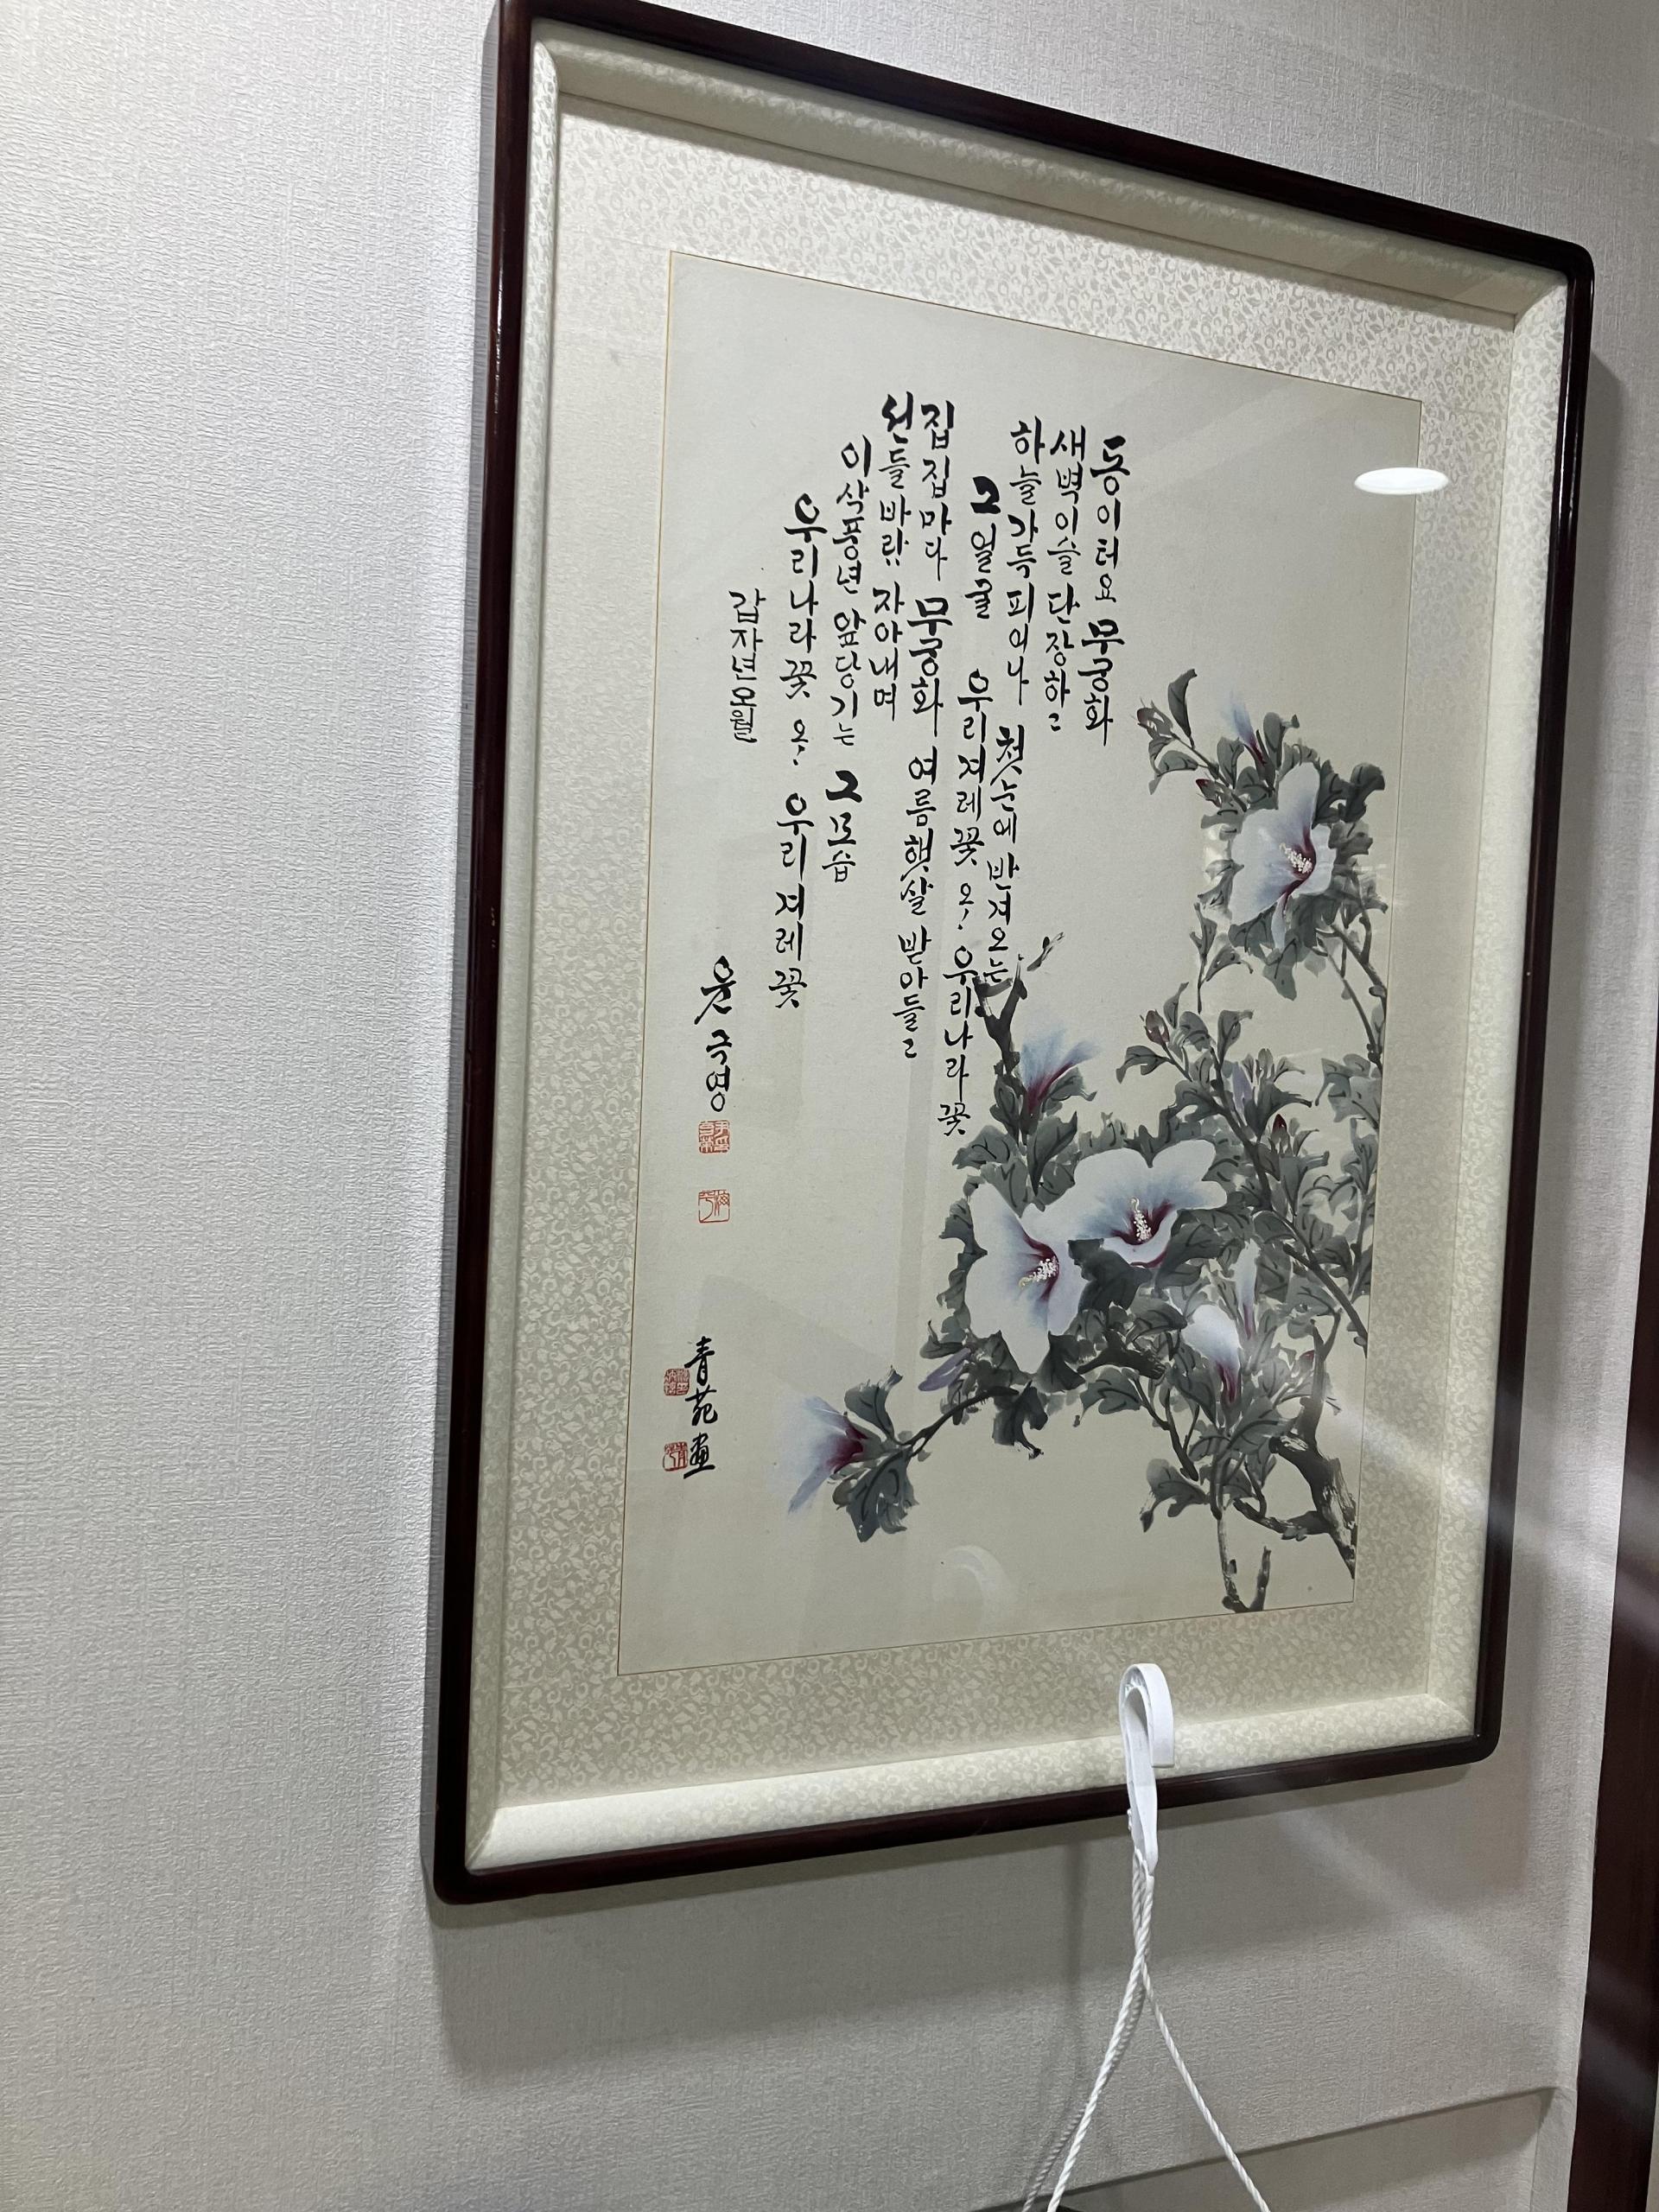 동이 터요 무궁화
새벽이슬 단장하고
하늘 가득 피어나 첫눈에 반겨오는
그 얼굴 우리 겨레꽃 오, 우리나라꽃
집집마다 무궁화 여름햇살 받아들고
선들바람 자아내며
이삭풍년 앞당기는 그 모습
우리나라꽃 오, 우리 겨레꽃
갑자년 오월
윤국영
青苑畫